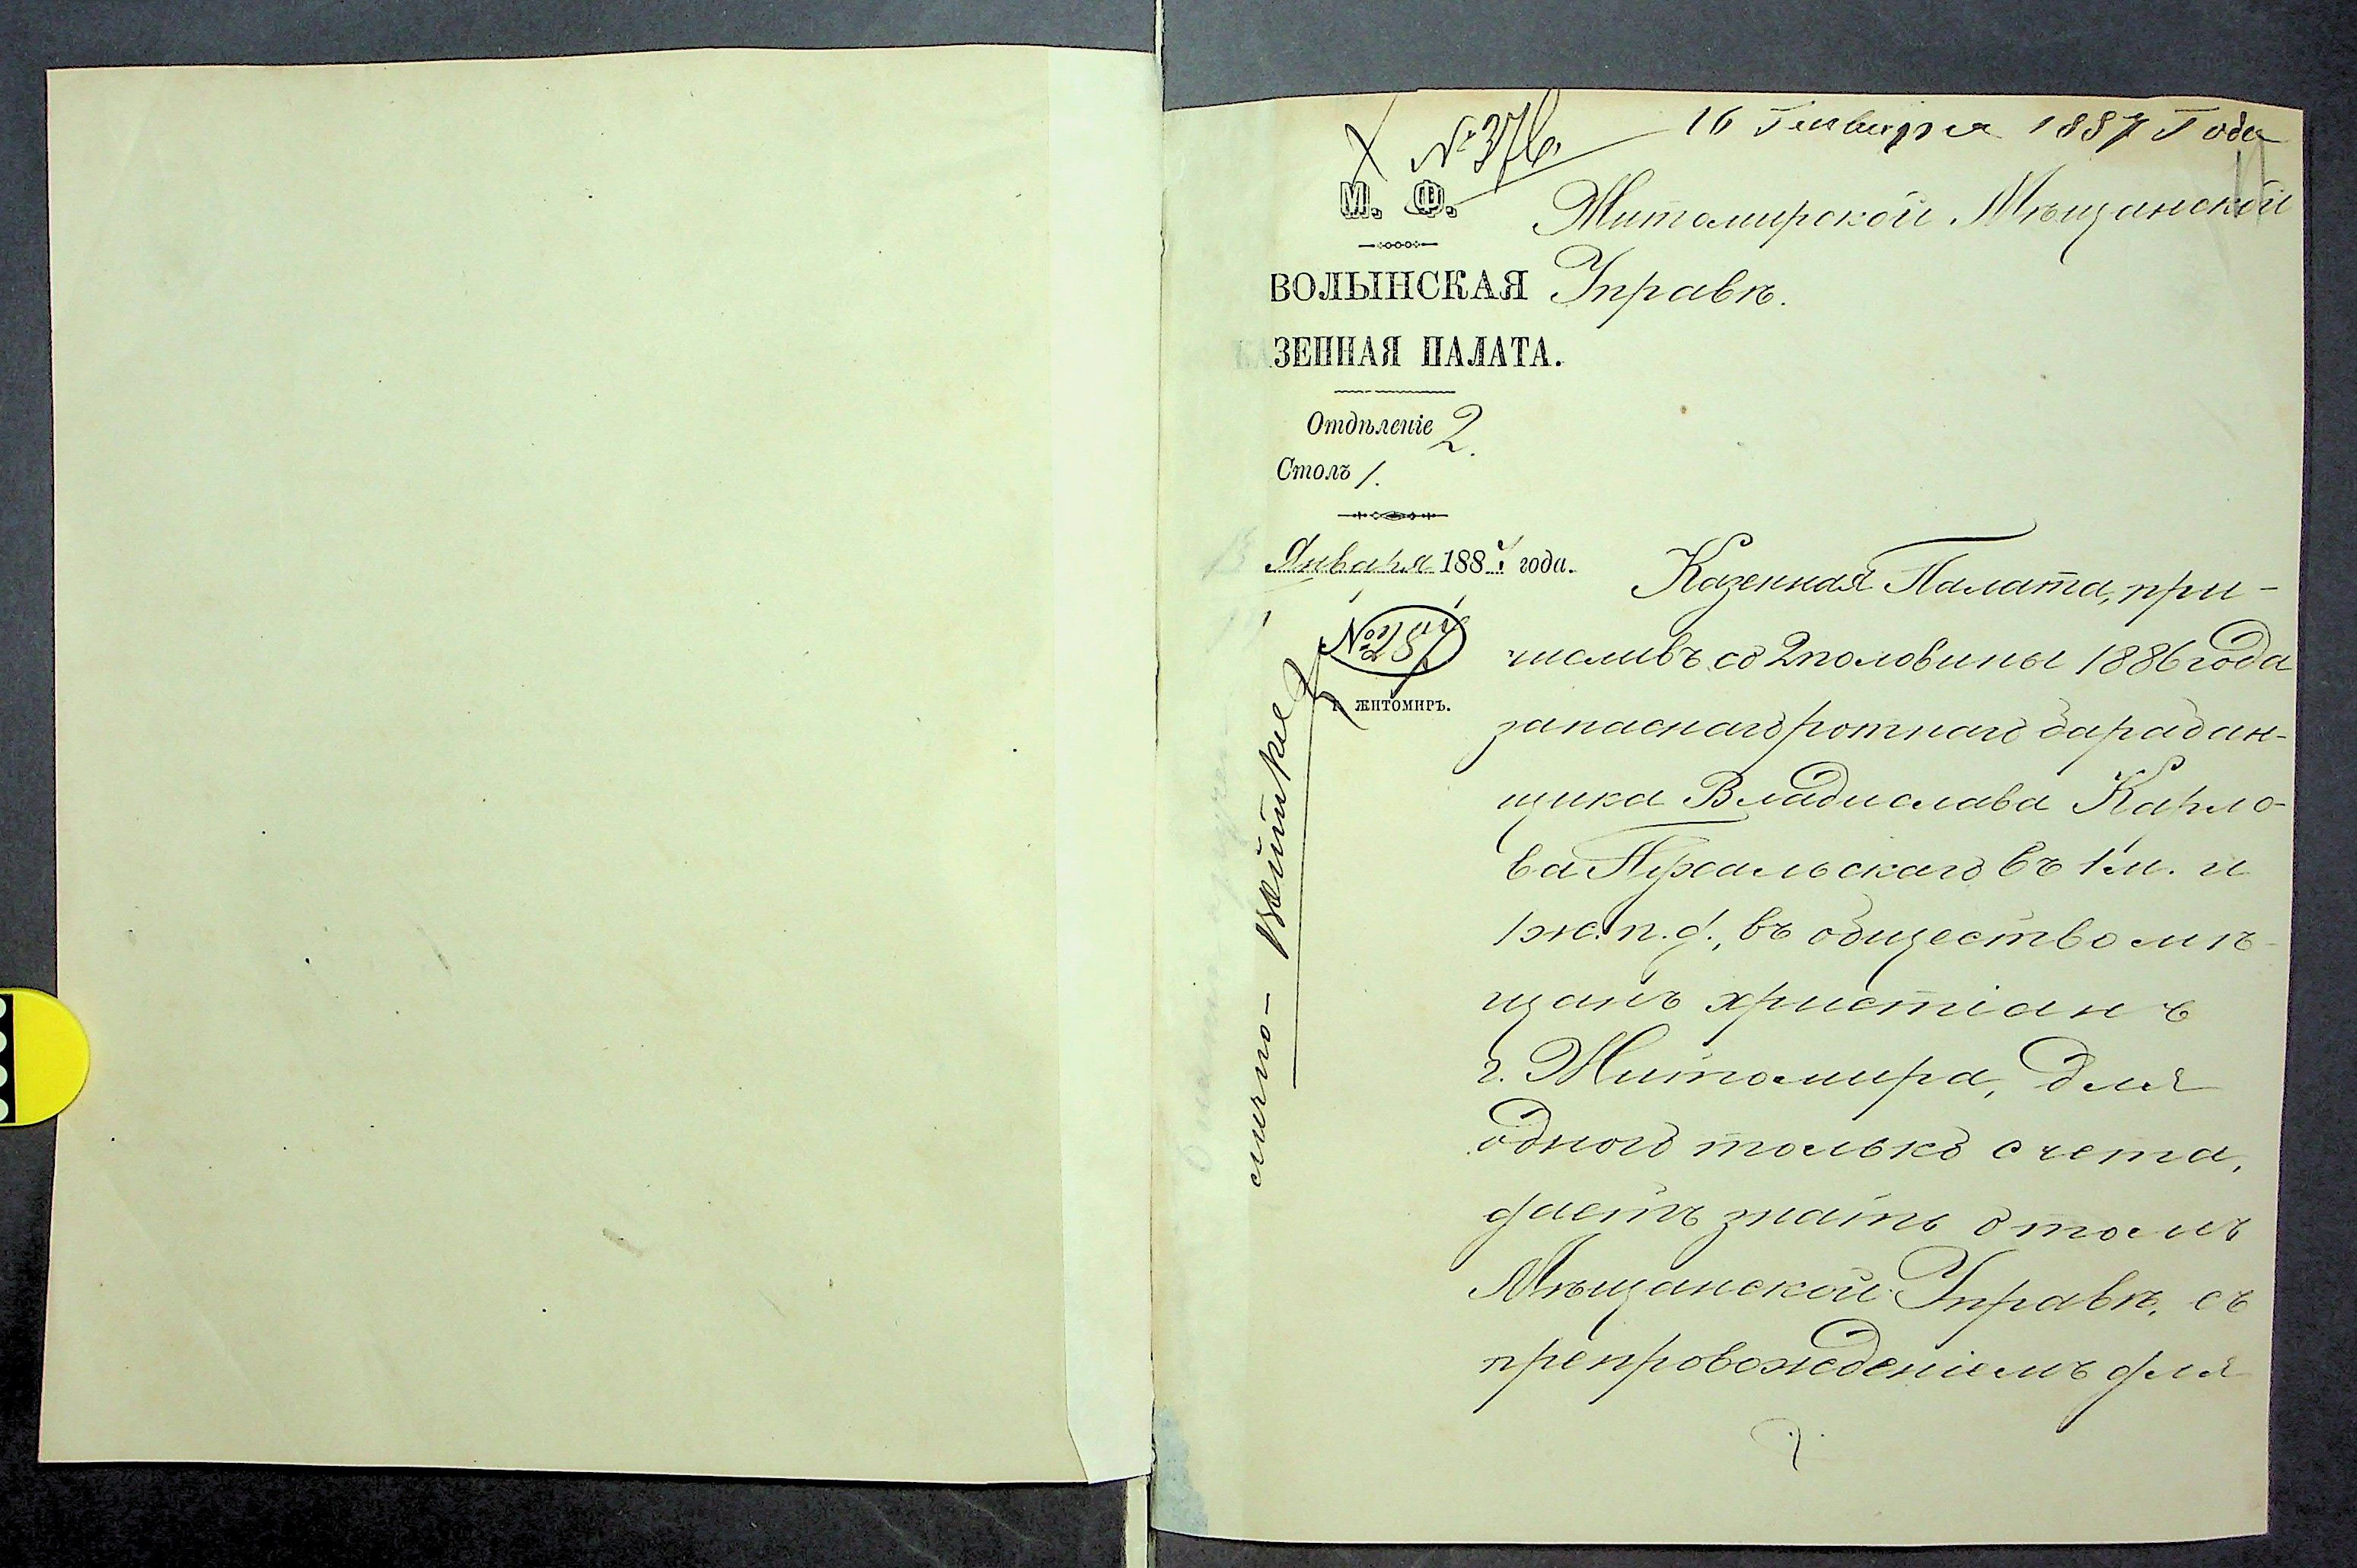 № 376.
16 Генваря 1887 Года
М. Ф.
Житомирской Мѣщанской
ВОЛЫНСКАЯ
Управѣ.
КАЗЕННАЯ ПАЛАТА.
Отдѣленіе 2.
Столъ 1.
Января 1887 года.
№ 287
г. ЖИТОМИРЪ.
Казенная Палата, при-
числивъ со 2 половины 1886 года
запаснаго ротнаго барабан-
щика Владислава Карло-
ва въ 1 м. и
1 ж. п. д., въ общество мѣ-
щанъ христіанъ
г. Житомира, для
одного только счета,
даетъ знать о томъ
Мѣщанской Управѣ, съ
препровожденіемъ для